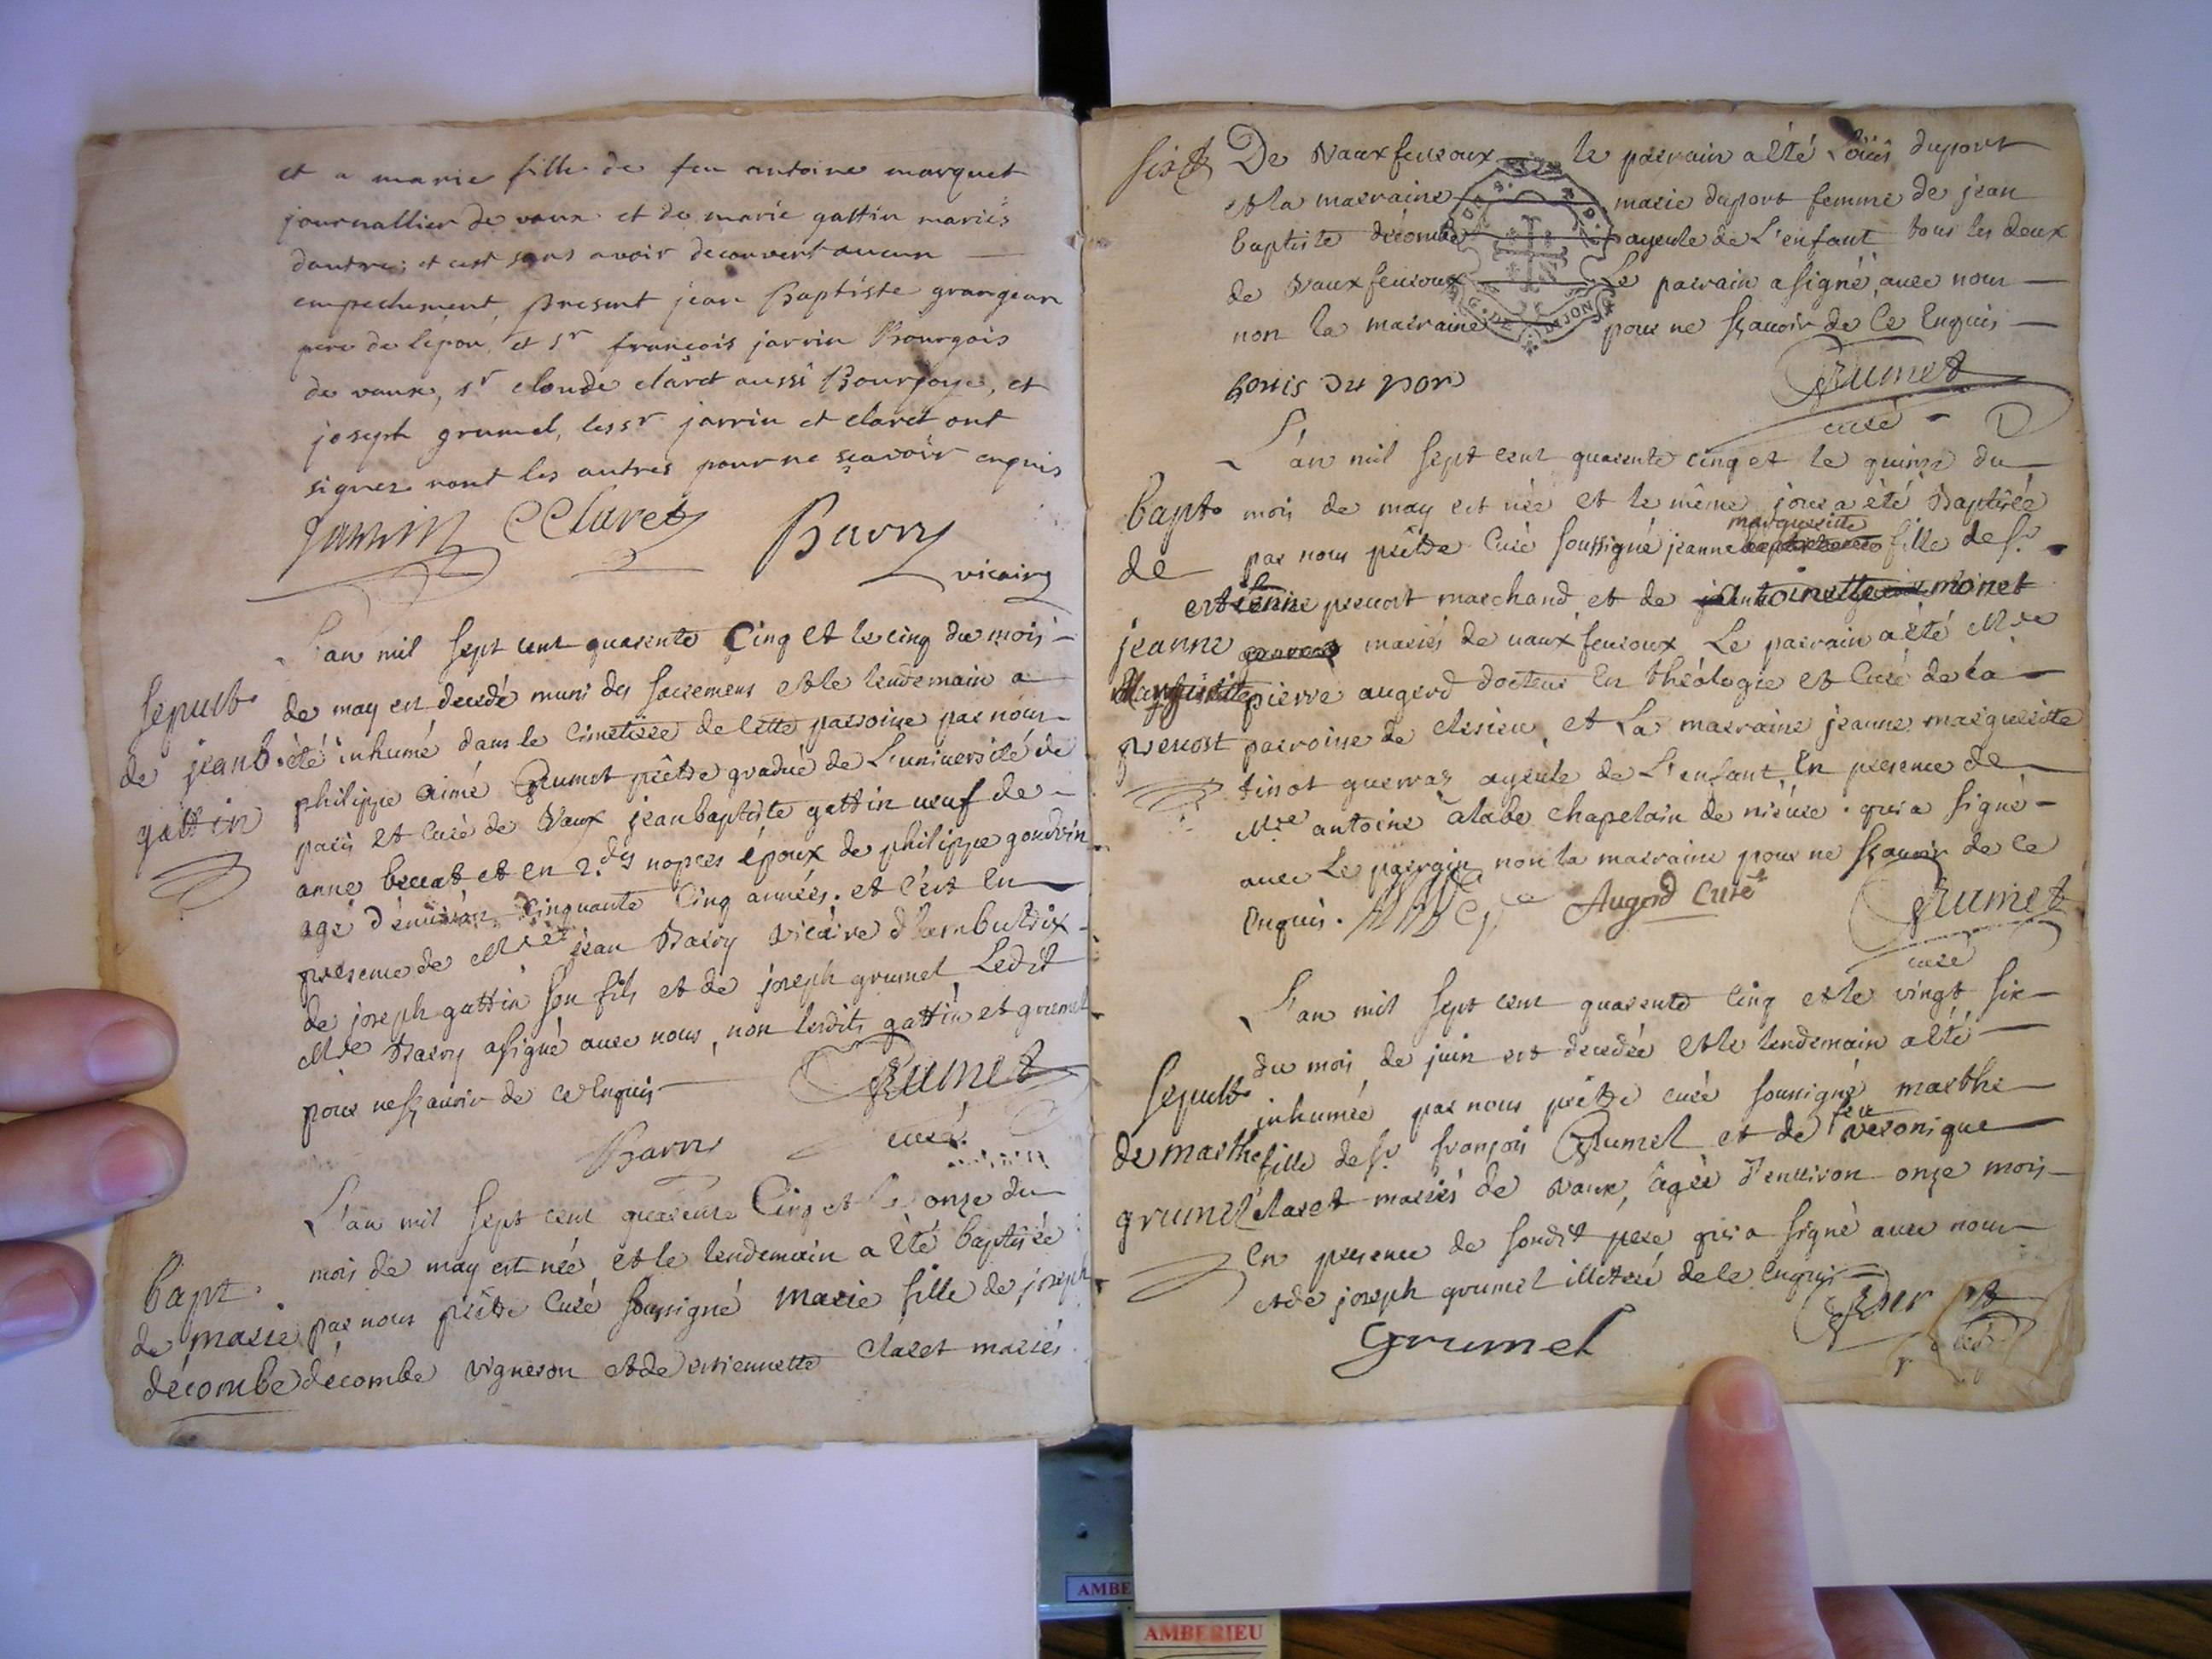 et a marie fille de feu antoine marquet
journallier de vaux et de marie gattin mariés
dautre; et cest sans avoir decouvert aucun
empechement, Present jean Baptiste grangean
pere de l'épou, et sr françois jarrin Bourgois
de vaux, sr claude claret aussi Bourgoye, et
joseph grumel, lessr jarrin et claret ont
signez nont les autres pour ne sçavoir enquis
Jarrin CClaret Barry
vicaire
L'an mil sept cent quarente Cinq et le cinq du mois
de may est decedé muni des sacremens et le lendemain a
été inhumé dans le Cimetiere de cette parroisse par nous
philippe aimé Grumet prêtre gradué de L'université de
paris et Curé de Vaux jean baptiste gattin veuf de
anne beccat et en 2.des nopces époux de philippe gondvin
agé d'environ Cinquante Cinq années. et c'est En
presence de Mre jean Barry Vicaire d'ambutrix
de joseph gattin son fils et de joseph grumel Ledit
Mre Barry a signé avec nous, non lesdits gattin et grumel
pour ne sçavoir de ce Enquis
Grumet
curé
Barry
Sepult.
de jean b.
gattin
L'an mil sept cent quarente Cinq et Le onze du
mois de may est née et le lendemain a été baptisée
par nous prêtre Curé soussigné Marie fille de joseph
décombe vigneron et de estiennette Claret mariés
bapt.
de marie
décombe
De Vaux fevroux le parrain a été Loüis duport
et la marraine marie duport femme de jean
baptiste décombe ayeule de L'enfant tous les deux
de Vaux fevroux Le parrain a signé avec nous
non la marraine pour ne sçavoir de Ce Enquis
Louis du por
Grumet
curé
L'an mil sept cent quarente cinq et le quinze du
mois de may est née et le même jour a été Baptisée
par nous prêtre Curé soussigné jeanne marguerite fille de sr
estienne prevost marchand et de antoinette monet
mariés de vaux fevroux Le parrain a été Mre
pierre augerd docteur En théologie et Curé de la
parroisse de clesieu, et La marraine jeanne marguerite
tinot guerraz ayeule de L'enfant, En presence de
Mre antoine alabe chapelain de niévre. qui a signé
avec Le parrain, non la marraine pour ne sçavoir de Ce
Enquis. Augerd Curé Grumet
curé
bapt.
de
jeanne
Marguerite
prevost
L'an mil sept cent quarente Cinq et le vingt six
du mois de juin est decedée et le lendemain a été
inhumée par nous prêtre curé soussigné marthe
fille de sr françois Grumel et de feu veronique
claret mariés de Vaux, âgée d'environ onze mois
En presence de sondit pere qui a signé avec nous
et de joseph grumel illitéré de ce Enquis
Grumel
Sepult.
de marthe
grumel
DIJON
AMBE
AMBERIEU